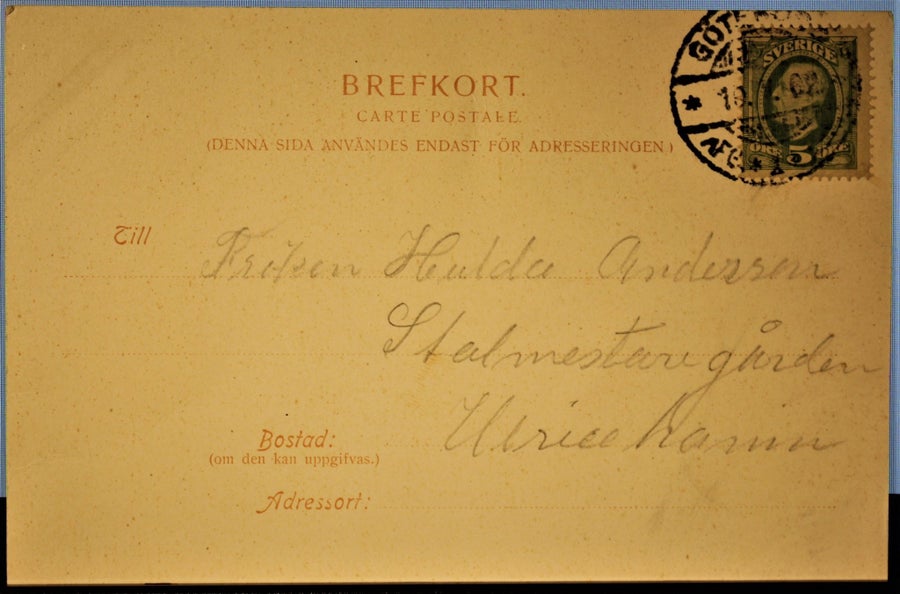 BREFKORT.
CARTE POSTALE.
(DENNA SIDA ANVÄNDES ENDAST FÖR ADRESSERINGEN.)
SVERIGE
ÖRE 5 ÖRE
Till
Fröken Hulda Andersson
Stalmestaregården
Bostad:
Ulricehamn
(om den kan uppgifvas.)
Adressort: